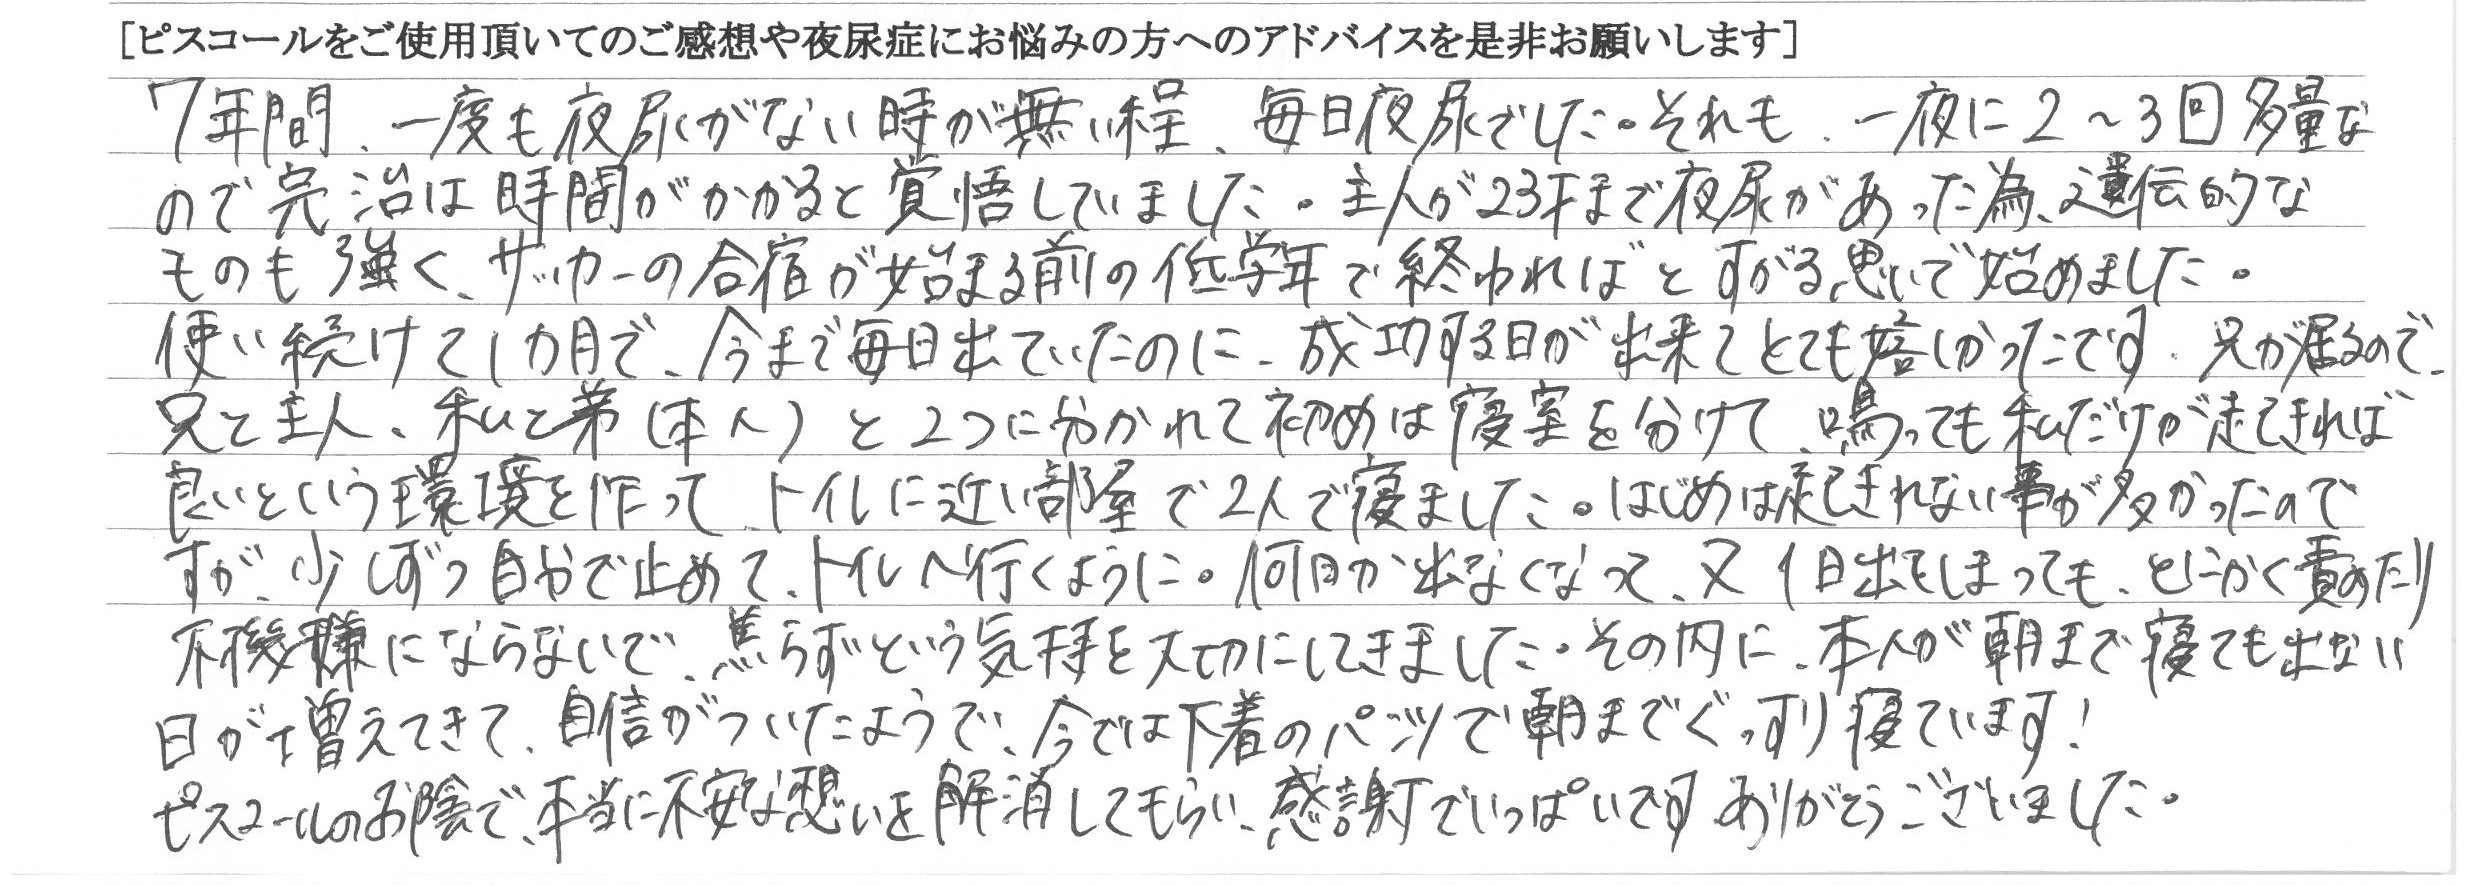 [ピスコールをご使用頂いてのご感想や夜尿症にお悩みの方へのアドバイスを是非お願いします]
7年間、一度も夜尿がない時が無い程、毎日夜尿でした。それも、一夜に2～3回多量な
ので完治は時間がかかると覚悟していました。主人が23才まで夜尿があった為、遺伝的な
ものも強く、サッカーの合宿が始まる前の低学年で終われば と すがる思いで始めました。
使い続けて1カ月で、今まで毎日出ていたのに、成功する日が出来てとても嬉しかったです。兄が居るので、
兄と主人、私と弟(本人)と2つに分かれて初めは寝室を分けて、鳴っても私だけが起きれば
良いという環境を作って、トイレに近い部屋で2人で寝ました。はじめは起きれない事が多かったので
すが、少しずつ自分で止めて、トイレへ行くように。何日か出なくなって、又1日出てしまっても、とにかく責めたり
不機嫌にならないで、焦らずという気持を大切にしてきました。その内に、本人が朝まで寝ても出ない
日が増えてきて、自信がついたようで、今では下着のパンツで朝までぐっすり寝ています!
ピスコールのお陰で、本当に不安な想いを解消してもらい、感謝でいっぱいです。ありがとうございました。